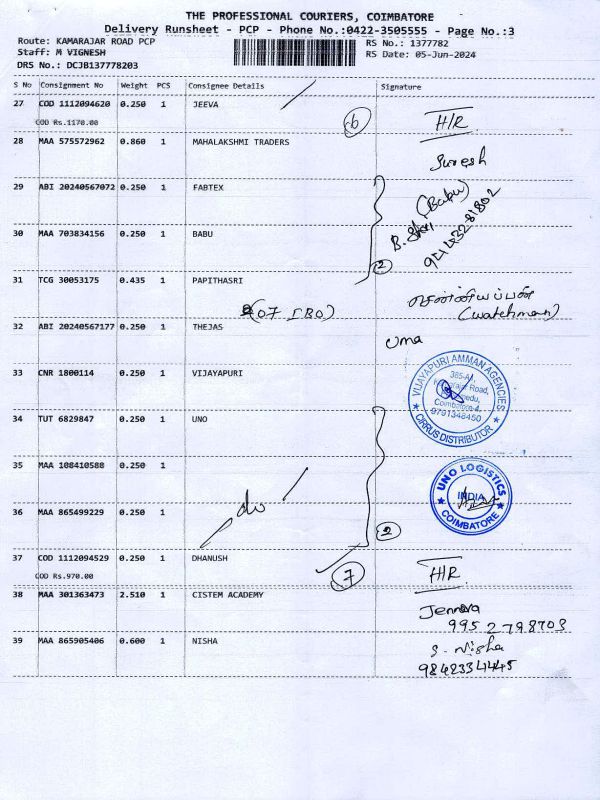 THE PROFESSIONAL COURIERS, COIMBATORE
Delivery Runsheet - PCP - Phone No.:0422-3505555 - Page No.:3
Route: KAMARAJAR ROAD PCP
Staff: M VIGNESH
DRS No.: DCJB137778203
RS No.: 1377782
RS Date: 05-Jun-2024
S No Consignment No Weight PCS Consignee Details Signature
27 COD 1112094620 0.250 1 JEEVA
COD Rs.1170.00
6 H/R
28 MAA 575572962 0.860 1 MAHALAKSHMI TRADERS
Suresh
29 ABI 20240567072 0.250 1 FABTEX
(Babu)
30 MAA 703834156 0.250 1 BABU
2
31 TCG 30053175 0.435 1 PAPITHASRI
(watchman)
32 ABI 20240567177 0.250 1 THEJAS
uma
33 CNR 1800114 0.250 1 VIJAYAPURI
VIJAYAPURI AMMAN AGENCIES
Coimbatore-4.
9791346450
CIRRUS DISTRIBUTOR
34 TUT 6829847 0.250 1 UNO
35 MAA 108410588 0.250 1
UNO LOGISTICS
INDIA
COIMBATORE
do
36 MAA 865499229 0.250 1
2
37 COD 1112094529 0.250 1 DHANUSH
COD Rs.970.00
7 H/R
38 MAA 301363473 2.510 1 CISTEM ACADEMY
9952798703
39 MAA 865905406 0.600 1 NISHA
S. Nisha